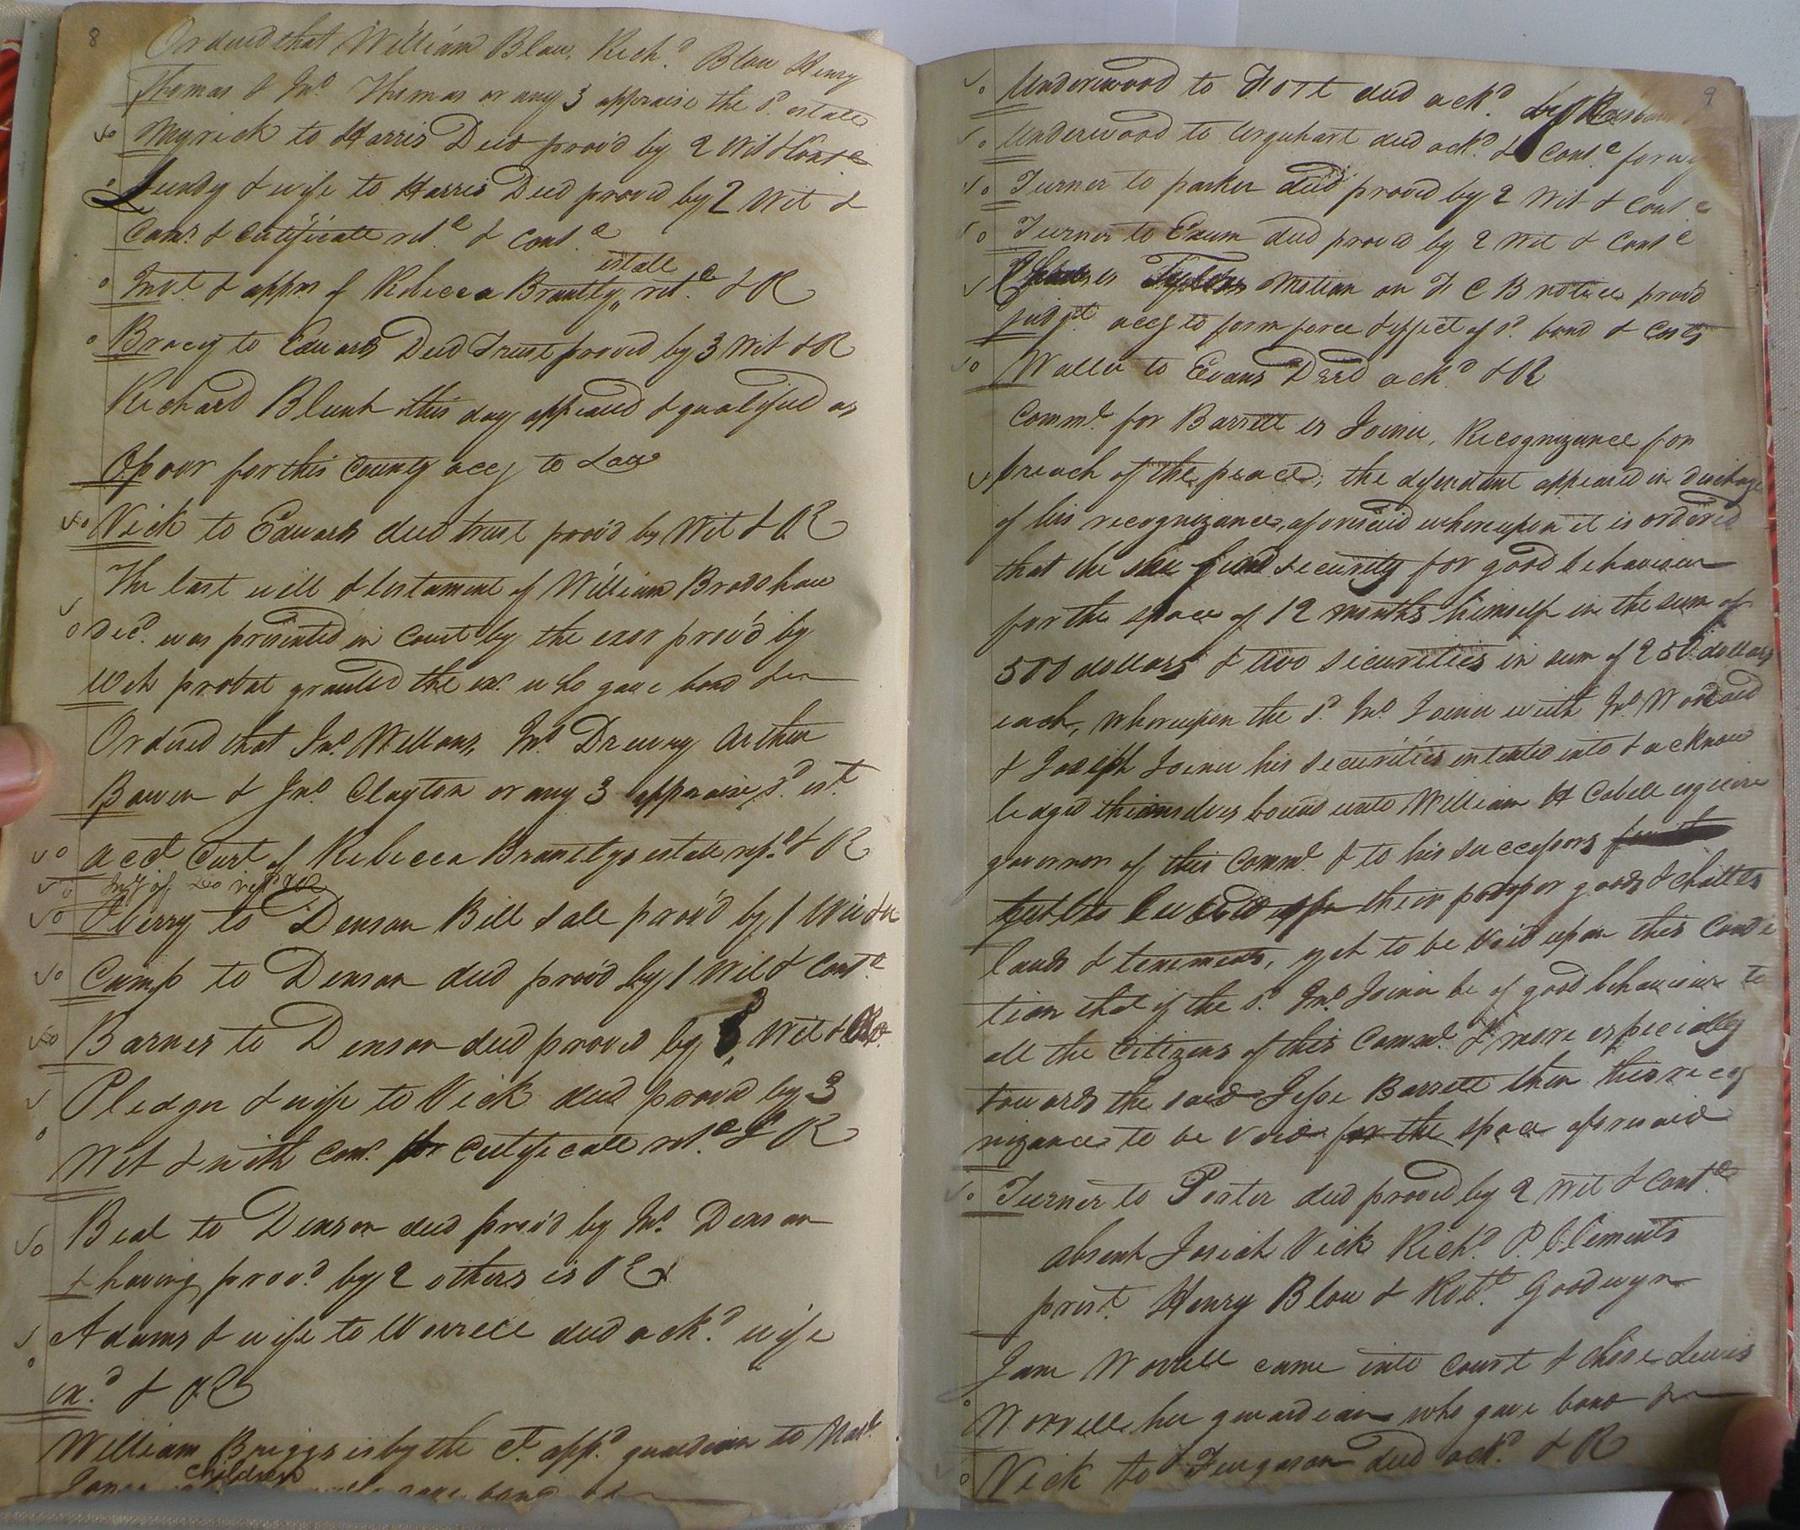 8
Ordered that William Blow, Rich.d Blow Henry
Thomas & Jno Thomas or any 3 appraise the s.d estate
Myrick to Harris Deed prov'd by 2 Wit & Cont.e
Lundy & wife to Harris Deed proved by 2 Wit &
Com.n & Certificate ret.d & Cont.e
estate
Invt. & apprs of Rebecca Brantly ret.d & R
Bracy to Edwards Deed Trust proved by 3 Wit & R
Richard Blunt this day appeared & qualified as
for this County accg to Law
Vick to Edwards deed trust prov'd by Wit & R
The last will & testament of William Bradshaw
Dec.d was presented in Court by the exor prov'd by
Wit probat granted the ex.r who gave bond &c
Ordered that Jno Wellons, Jno Drewry Arthur
Bowen & Jno Clayton or any 3 appraise s.d est.t
acct Curt of Rebecca Brantlys estate ret.d & R
Inv.y of Do ret.d &R
Oberry to Denson Bill Sale prov'd by 1 Wit & R
Camp to Denson deed prov'd by 1 Wit & Cont.e
Barnes to Denson deed proved by 3 Wit &
Pledger & wife to Vick deed prov'd by 3
Wit & with Com.n Certificate ret.d & R
Beal to Denson deed prov'd by Jno Denson
& having prov.d by 2 others is R
Adams & wife to Worrell deed ack.d wife
ex.d & R
William Briggs is by the Ct app.d guardian to
children
gave bond &c
9
Underwood to deed ack.d
Underwood to Urquhart deed ack.d & Cont.e for
Turner to parker deed proved by 2 Wit & Cont.e
Turner to Exum deed proved by 2 Wit & Cont.e
vs Motion on F C B notice prov'd
judg.t accg to form force & effect of s.d bond & Costs
Waller to Evans Deed ack.d & R
Comm.l for Barrett vs Joiner, Recognizance for
breach of the peace, the defendant appeared in discharge
of his recognizance, aforesaid whereupon it is ordered
that he find security for good behaviour
for the space of 12 months himself in the sum of
500 dollars & two securities in sum of 250 dollars
each, whereupon the s.d Jno Joiner with Jno Woodard
& Joseph Joiner his securities entered into & acknow
ledged themselves bound unto William H Cabell esquire
governor of this Comm.l & to his successors
their proper goods & chattels
lands & tenements, yet to be Void upon this Condi
tion that if the s.d Jno Joiner be of good behaviour to
all the Citizens of this Comm.l & more especially
towards the said Jesse Barrett then this recog
nizance to be Void for the space aforesaid
Turner to Porter deed proved by 2 Wit & Cont.e
absent Josiah Vick Rich.d P. Clements
pres.t Henry Blow & Rob.t Goodwyn
Jane Worrell came into Court & chose Lewis
Worrell her guardian who gave bond &c
Vick to Ferguson deed ack.d & R